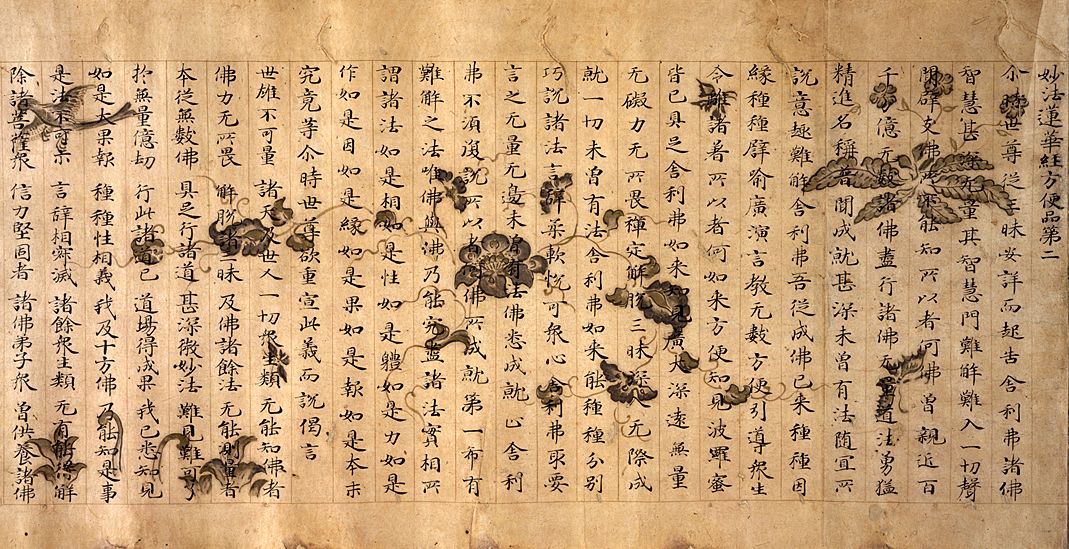 妙法蓮華經方便品第二
尒時世尊從三昧安詳而起告舍利弗諸佛
智慧甚深无量其智慧門難解難入一切聲
聞辟支佛所不能知所以者何佛曾親近百
千萬億无數諸佛盡行諸佛无量道法勇猛
精進名稱普聞成就甚深未曾有法隨宜所
說意趣難解舍利弗吾從成佛已來種種因
緣種種譬喻廣演言教无數方便引導衆生
令離諸著所以者何如來方便知見波羅蜜
皆已具足舍利弗如來知見廣大深遠無量
无礙力无所畏禪定解脫三昧深入无際成
就一切未曾有法舍利弗如來能種種分別
巧說諸法言辭柔軟悅可衆心舍利弗取要
言之无量无邊未曾有法佛悉成就止舍利
弗不須復說所以者何佛所成就第一希有
難解之法唯佛與佛乃能究盡諸法實相所
謂諸法如是相如是性如是體如是力如是
作如是因如是緣如是果如是報如是本末
究竟等尒時世尊欲重宣此義而說偈言
世雄不可量 諸天及世人 一切衆生類 无能知佛者
佛力无所畏 解脫諸三昧 及佛諸餘法 无能測量者
本從無數佛 具足行諸道 甚深微妙法 難見難可了
於無量億劫 行此諸道已 道場得成果 我已悉知見
如是大果報 種種性相義 我及十方佛 乃能知是事
是法不可示 言辭相寂滅 諸餘衆生類 无有能得解
除諸菩薩衆 信力堅固者 諸佛弟子衆 曾供養諸佛